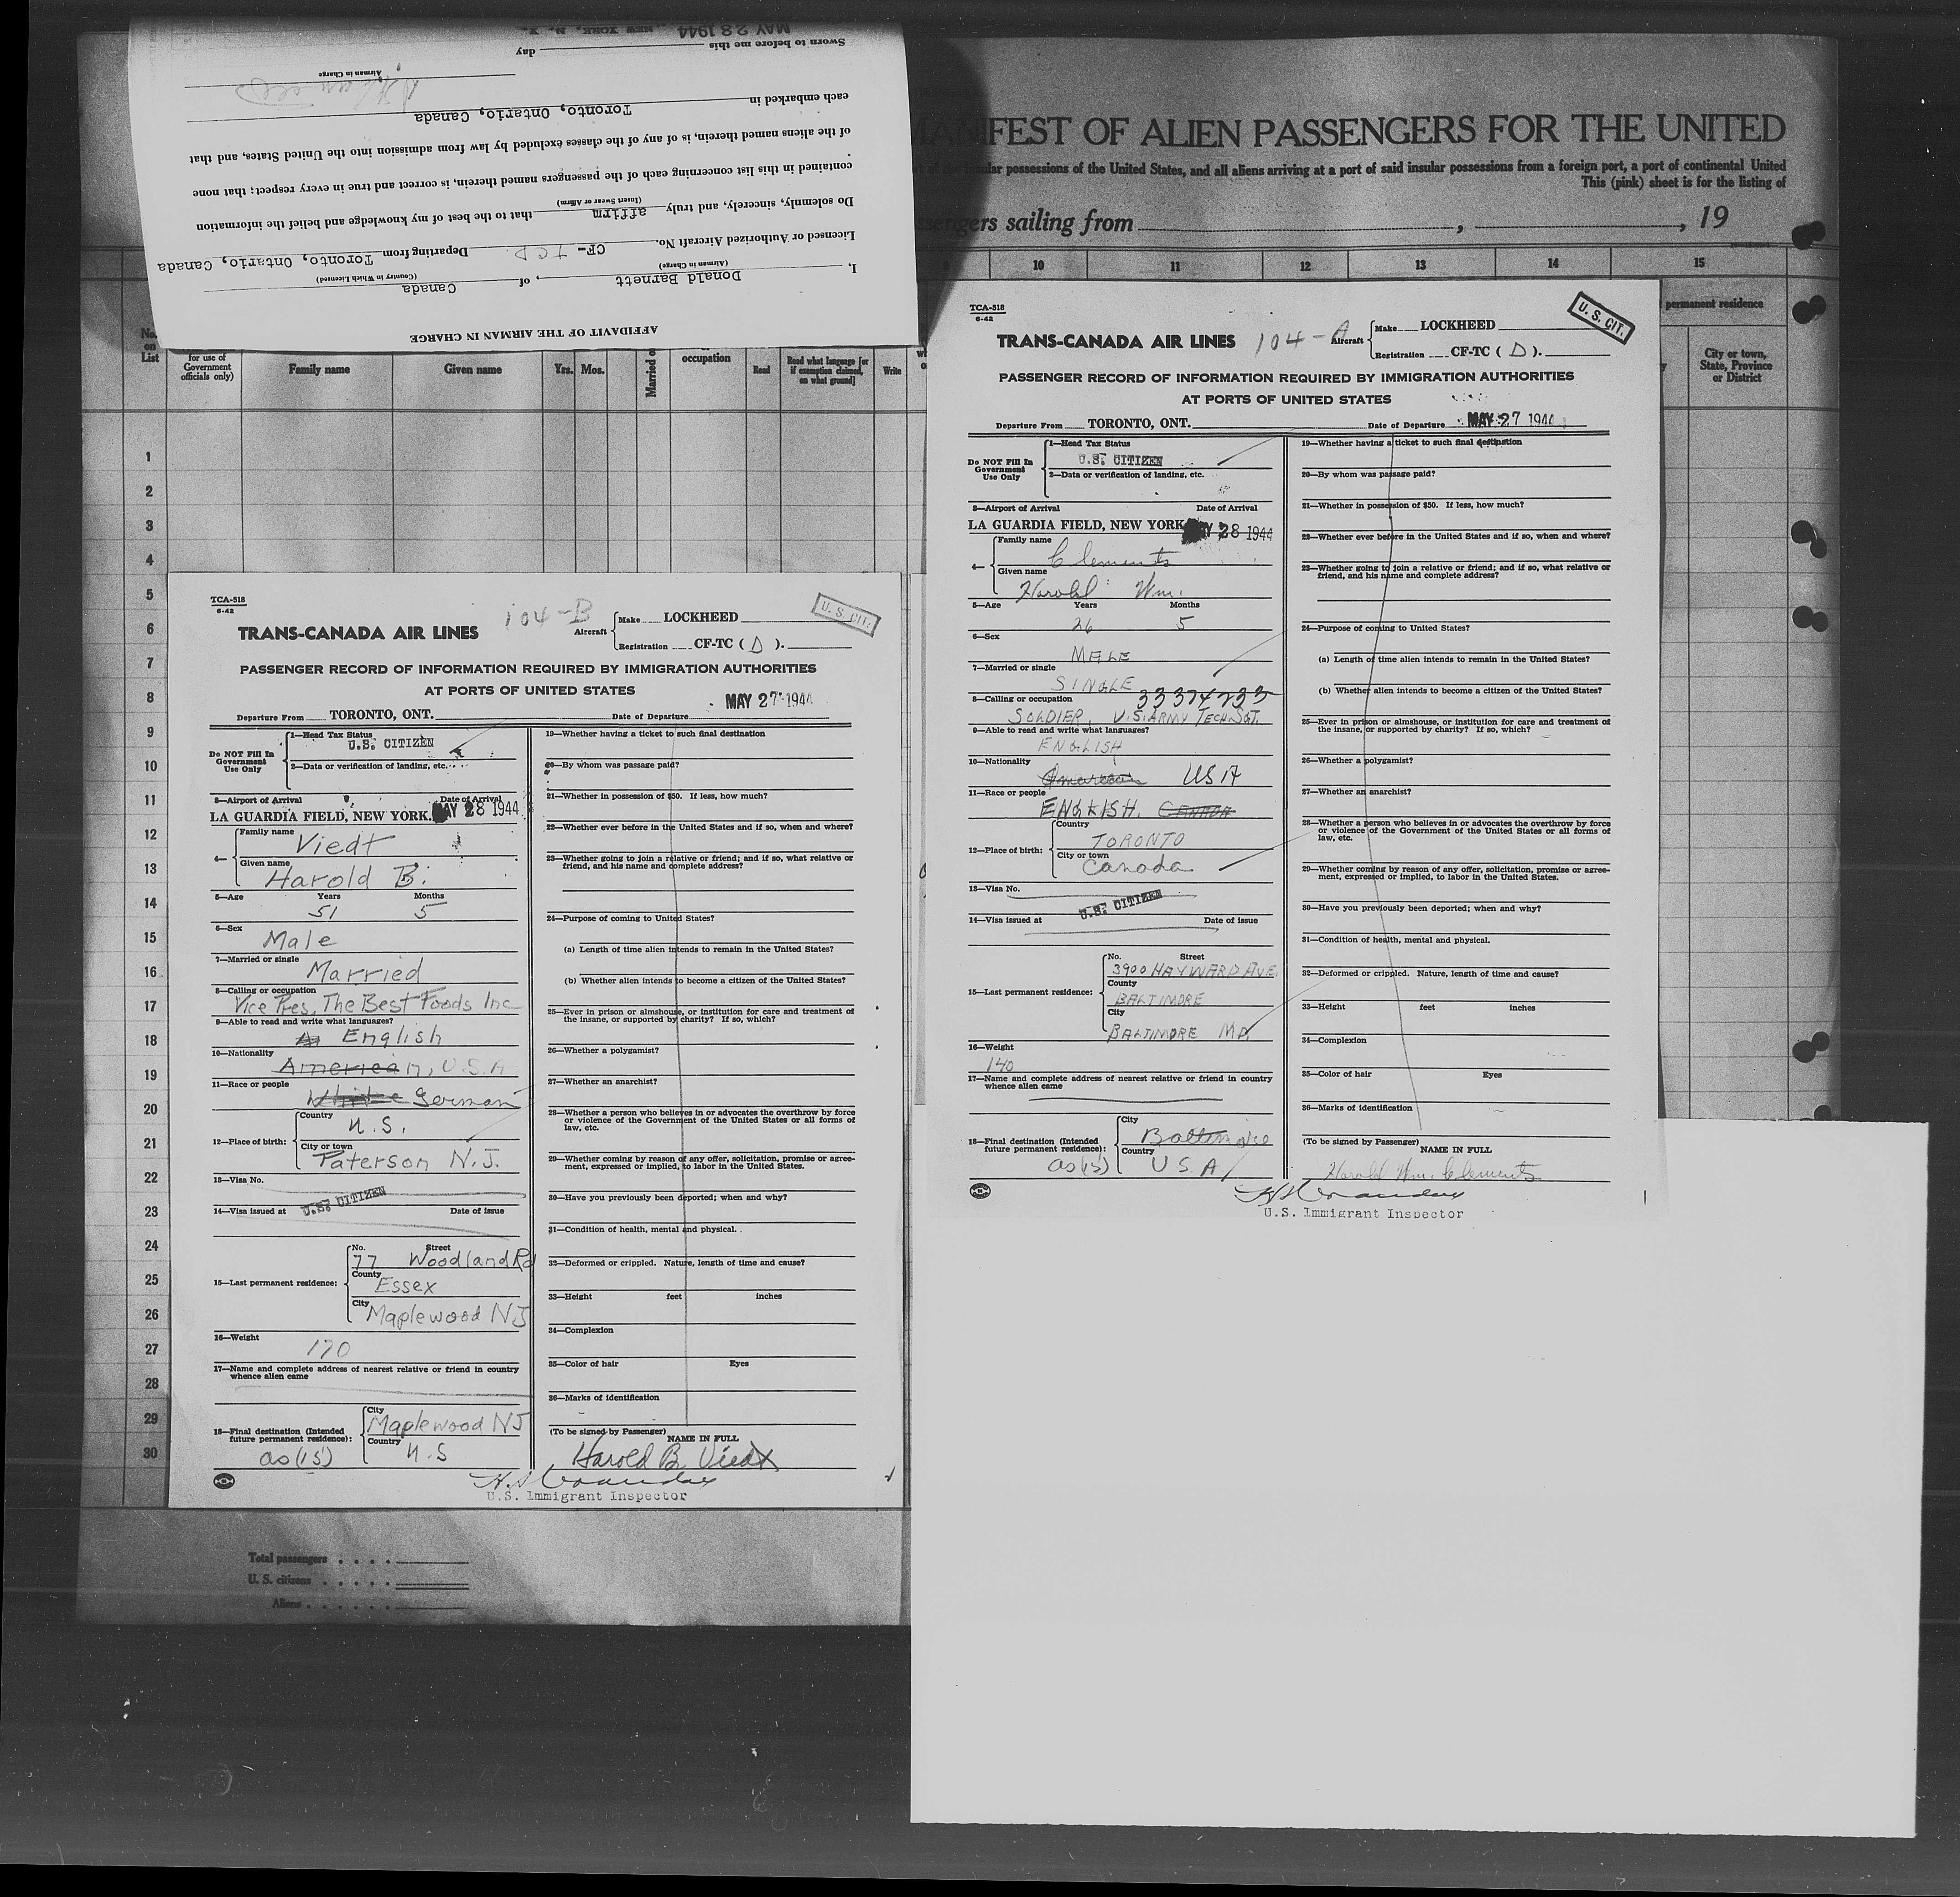 AFFIDAVIT OF THE AIRMAN IN CHARGE
I, Donald Barnett, of Canada
(Airman in Charge) (Country in Which Licensed)
Licensed or Authorized Aircraft No. CF-TCD Departing from Toronto, Ontario, Canada
Do solemnly, sincerely, and truly affirm that to the best of my knowledge and belief the information
(Insert Swear or Affirm)
contained in this list concerning each of the passengers named therein, is correct and true in every respect; that none
of the aliens named therein, is of any of the classes excluded by law from admission into the United States, and that
each embarked in Toronto, Ontario, Canada
Airman in Charge
Sworn to before me this day
MAY 28 1944 NEW YORK, N. Y.
MANIFEST OF ALIEN PASSENGERS FOR THE UNITED
insular possessions of the United States, and all aliens arriving at a port of said insular possessions from a foreign port, a port of continental United
This (pink) sheet is for the listing of
passengers sailing from , , 19
10 11 12 13 14 15
permanent residence
City or town, State, Province or District
No. on List
for use of Government officials only)
Family name Given name Yrs. Mos. Married occupation Read Read what language [or if exemption claimed, on what ground] Write
1
2
3
4
5
6
7
8
9
10
11
12
13
14
15
16
17
18
19
20
21
22
23
24
25
26
27
28
29
30
Total passengers
U. S. citizens
Aliens
TCA-518
6-42
TRANS-CANADA AIR LINES
104-B
Aircraft
Make LOCKHEED
Registration CF-TC ( D ).
U. S. CIT.
PASSENGER RECORD OF INFORMATION REQUIRED BY IMMIGRATION AUTHORITIES
AT PORTS OF UNITED STATES
Departure From TORONTO, ONT. Date of Departure MAY 27 1944
Do NOT Fill In Government Use Only
1—Head Tax Status
U.S. CITIZEN
2—Data or verification of landing, etc.
3—Airport of Arrival Date of Arrival
LA GUARDIA FIELD, NEW YORK. MAY 28 1944
4— Family name Viedt
Given name Harold B.
5—Age Years 51 Months 5
6—Sex Male
7—Married or single Married
8—Calling or occupation
Vice Pres. The Best Foods Inc
9—Able to read and write what languages?
English
10—Nationality
American, U.S.A
11—Race or people
White German
12—Place of birth: Country U.S.
City or town Paterson N.J.
13—Visa No.
U.S. CITIZEN
14—Visa issued at Date of issue
15—Last permanent residence: No. Street
77 Woodland Rd
County Essex
City Maplewood NJ
16—Weight
170
17—Name and complete address of nearest relative or friend in country whence alien came
18—Final destination (Intended future permanent residence):
as (15)
City Maplewood NJ
Country U.S
19—Whether having a ticket to such final destination
20—By whom was passage paid?
21—Whether in possession of $50. If less, how much?
22—Whether ever before in the United States and if so, when and where?
23—Whether going to join a relative or friend; and if so, what relative or friend, and his name and complete address?
24—Purpose of coming to United States?
(a) Length of time alien intends to remain in the United States?
(b) Whether alien intends to become a citizen of the United States?
25—Ever in prison or almshouse, or institution for care and treatment of the insane, or supported by charity? If so, which?
26—Whether a polygamist?
27—Whether an anarchist?
28—Whether a person who believes in or advocates the overthrow by force or violence of the Government of the United States or all forms of law, etc.
29—Whether coming by reason of any offer, solicitation, promise or agreement, expressed or implied, to labor in the United States.
30—Have you previously been deported; when and why?
31—Condition of health, mental and physical.
32—Deformed or crippled. Nature, length of time and cause?
33—Height feet inches
34—Complexion
35—Color of hair Eyes
36—Marks of identification
(To be signed by Passenger) NAME IN FULL
Harold B. Viedt
U.S. Immigrant Inspector
TCA-518
6-42
TRANS-CANADA AIR LINES
104-A
Aircraft
Make LOCKHEED
Registration CF-TC ( D ).
U. S. CIT.
PASSENGER RECORD OF INFORMATION REQUIRED BY IMMIGRATION AUTHORITIES
AT PORTS OF UNITED STATES
Departure From TORONTO, ONT. Date of Departure MAY 27 1944
Do NOT Fill In Government Use Only
1—Head Tax Status
U.S. CITIZEN
2—Data or verification of landing, etc.
3—Airport of Arrival Date of Arrival
LA GUARDIA FIELD, NEW YORK MAY 28 1944
4— Family name Clements
Given name Harold Wm.
5—Age Years 26 Months 5
6—Sex MALE
7—Married or single SINGLE
8—Calling or occupation 33374233
SOLDIER, U.S. ARMY TECH. SGT.
9—Able to read and write what languages?
ENGLISH
10—Nationality
American USA
11—Race or people
ENGLISH. CANADA
12—Place of birth: Country TORONTO
City or town Canada
13—Visa No.
U.S. CITIZEN
14—Visa issued at Date of issue
15—Last permanent residence: No. Street
3900 HAYWARD AVE.
County BALTIMORE
City BALTIMORE MD.
16—Weight
140
17—Name and complete address of nearest relative or friend in country whence alien came
18—Final destination (Intended future permanent residence):
as (15)
City Baltimore
Country U.S.A
19—Whether having a ticket to such final destination
20—By whom was passage paid?
21—Whether in possession of $50. If less, how much?
22—Whether ever before in the United States and if so, when and where?
23—Whether going to join a relative or friend; and if so, what relative or friend, and his name and complete address?
24—Purpose of coming to United States?
(a) Length of time alien intends to remain in the United States?
(b) Whether alien intends to become a citizen of the United States?
25—Ever in prison or almshouse, or institution for care and treatment of the insane, or supported by charity? If so, which?
26—Whether a polygamist?
27—Whether an anarchist?
28—Whether a person who believes in or advocates the overthrow by force or violence of the Government of the United States or all forms of law, etc.
29—Whether coming by reason of any offer, solicitation, promise or agreement, expressed or implied, to labor in the United States.
30—Have you previously been deported; when and why?
31—Condition of health, mental and physical.
32—Deformed or crippled. Nature, length of time and cause?
33—Height feet inches
34—Complexion
35—Color of hair Eyes
36—Marks of identification
(To be signed by Passenger) NAME IN FULL
Harold Wm. Clements
U.S. Immigrant Inspector